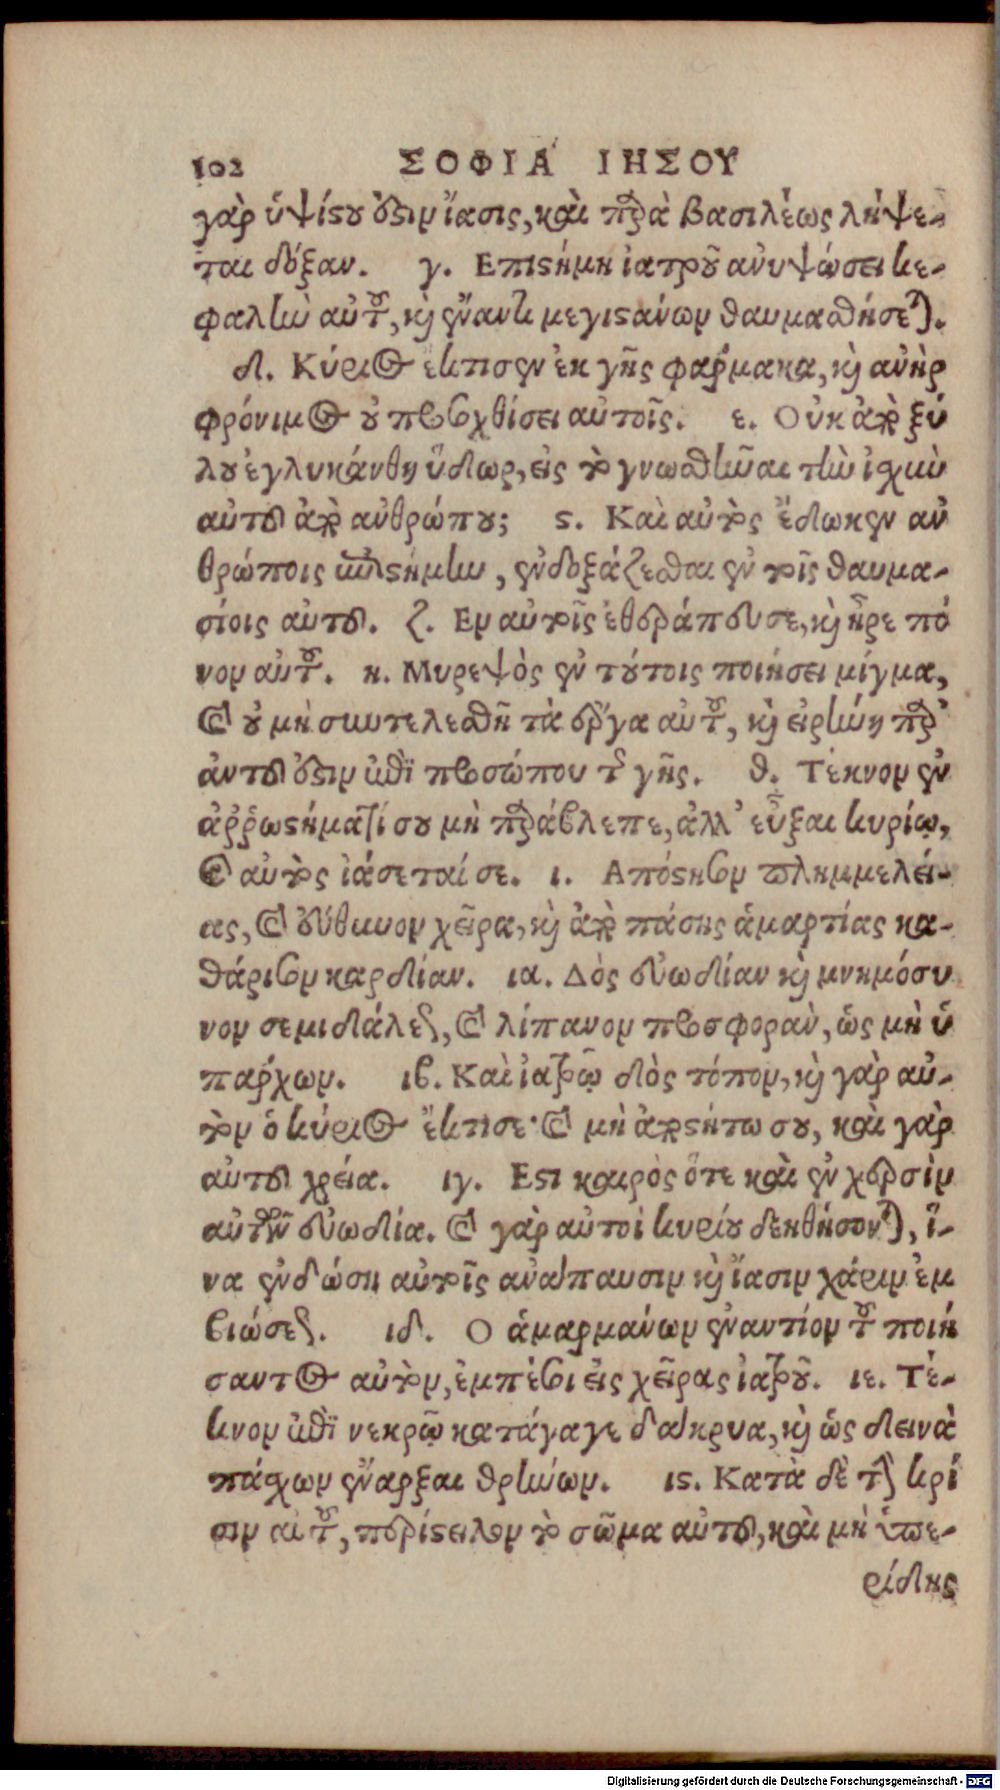 102 ΣΟΦΙΑ ΙΗΣΟΥ
γὰρ ὑψίςου ἐςιν ἴασις, καὶ παρὰ βασιλέως λήψε-
ται δόξαν. γ. Επιςήμη ἰατροῦ ἀνυψώσει κε-
φαλὴν αὐτοῦ, καὶ ἔναντι μεγιςάνων θαυμαθήσεται.
δ. Κύριος ἔκτισεν ἐκ γῆς φάρμακα, καὶ ἀνὴρ
φρόνιμος οὐ προσοχθίσει αὐτοῖς. ε. Οὐκ ἀπὸ ξύ
λου ἐγλυκάνθη ὕδωρ, εἰς τὸ γνωσθῆναι τὴν ἰσχὺν
αὐτοῦ ἀπὸ ἀνθρώπου; ς. Καὶ αὐτὸς ἔδωκεν ἀν
θρώποις ἐπιςήμην, ἐνδοξάζεσθαι ἐν τοῖς θαυμα-
σίοις αὐτοῦ. ζ. Εν αὐτοῖς ἐθεράπευσε, καὶ ἦρε πό
νον αὐτοῦ. η. Μυρεψὸς ἐν τούτοις ποιήσει μίγμα,
καὶ οὐ μὴ συντελεσθῆ τὰ ἔργα αὐτοῦ, καὶ εἰρήνη παρ'
ἀυτοῦ ἐςιν ἐπὶ προσώπου τῆς γῆς. θ. Τέκνον ἐν
ἀῤῥωςήματί σου μὴ παράβλεπε, ἀλλ' εὖξαι κυρίῳ,
καὶ αὐτὸς ἰάσεταί σε. ι. Απόςησον πλημμελεί-
ας, καὶ εὔθυνον χεῖρα, καὶ ἀπὸ πάσης ἁμαρτίας κα-
θάρισον καρδίαν. ια. Δὸς εὐωδίαν καὶ μνημόσυ
νον σεμιδάλεως, καὶ λίπανον προσφορὰν, ὡς μὴ ὑ
πάρχων. ιβ. Καὶ ἰατρῷ δὸς τόπον, καὶ γὰρ αὐ-
τὸν ὁ κύριος ἔκτισε· καὶ μὴ ἀποςήτω σου, καὶ γὰρ
αὐτοῦ χρεία. ιγ. Εςι καιρὸς ὅτε καὶ ἐν χερσὶν
αὐτῶν εὐωδία. καὶ γὰρ αὐτοὶ κυρίου δεηθήσονται, ἵ-
να ἐνδώση αὐτοῖς ἀνάπαυσιν καὶ ἴασιν χάριν ἐμ
βιώσεως. ιδ. Ο ἁμαρμάνων ἐναντίον τοῦ ποιή
σαντος αὐτὸν, ἐμπέσοι εἰς χεῖρας ἰατροῦ. ιε. Τέ-
κνον ἐπὶ νεκρῷ κατάγαγε δάκρυα, καὶ ὡς δεινὰ
πάσχων ἔναρξαι θρήνων. ις. Κατὰ δὲ τὴν κρί
σιν αὐτοῦ, περίςειλον τὸ σῶμα αὐτοῦ, καὶ μὴ ὑπε-
ρίδης
Digitalisierung gefördert durch die Deutsche Forschungsgemeinschaft - DFG